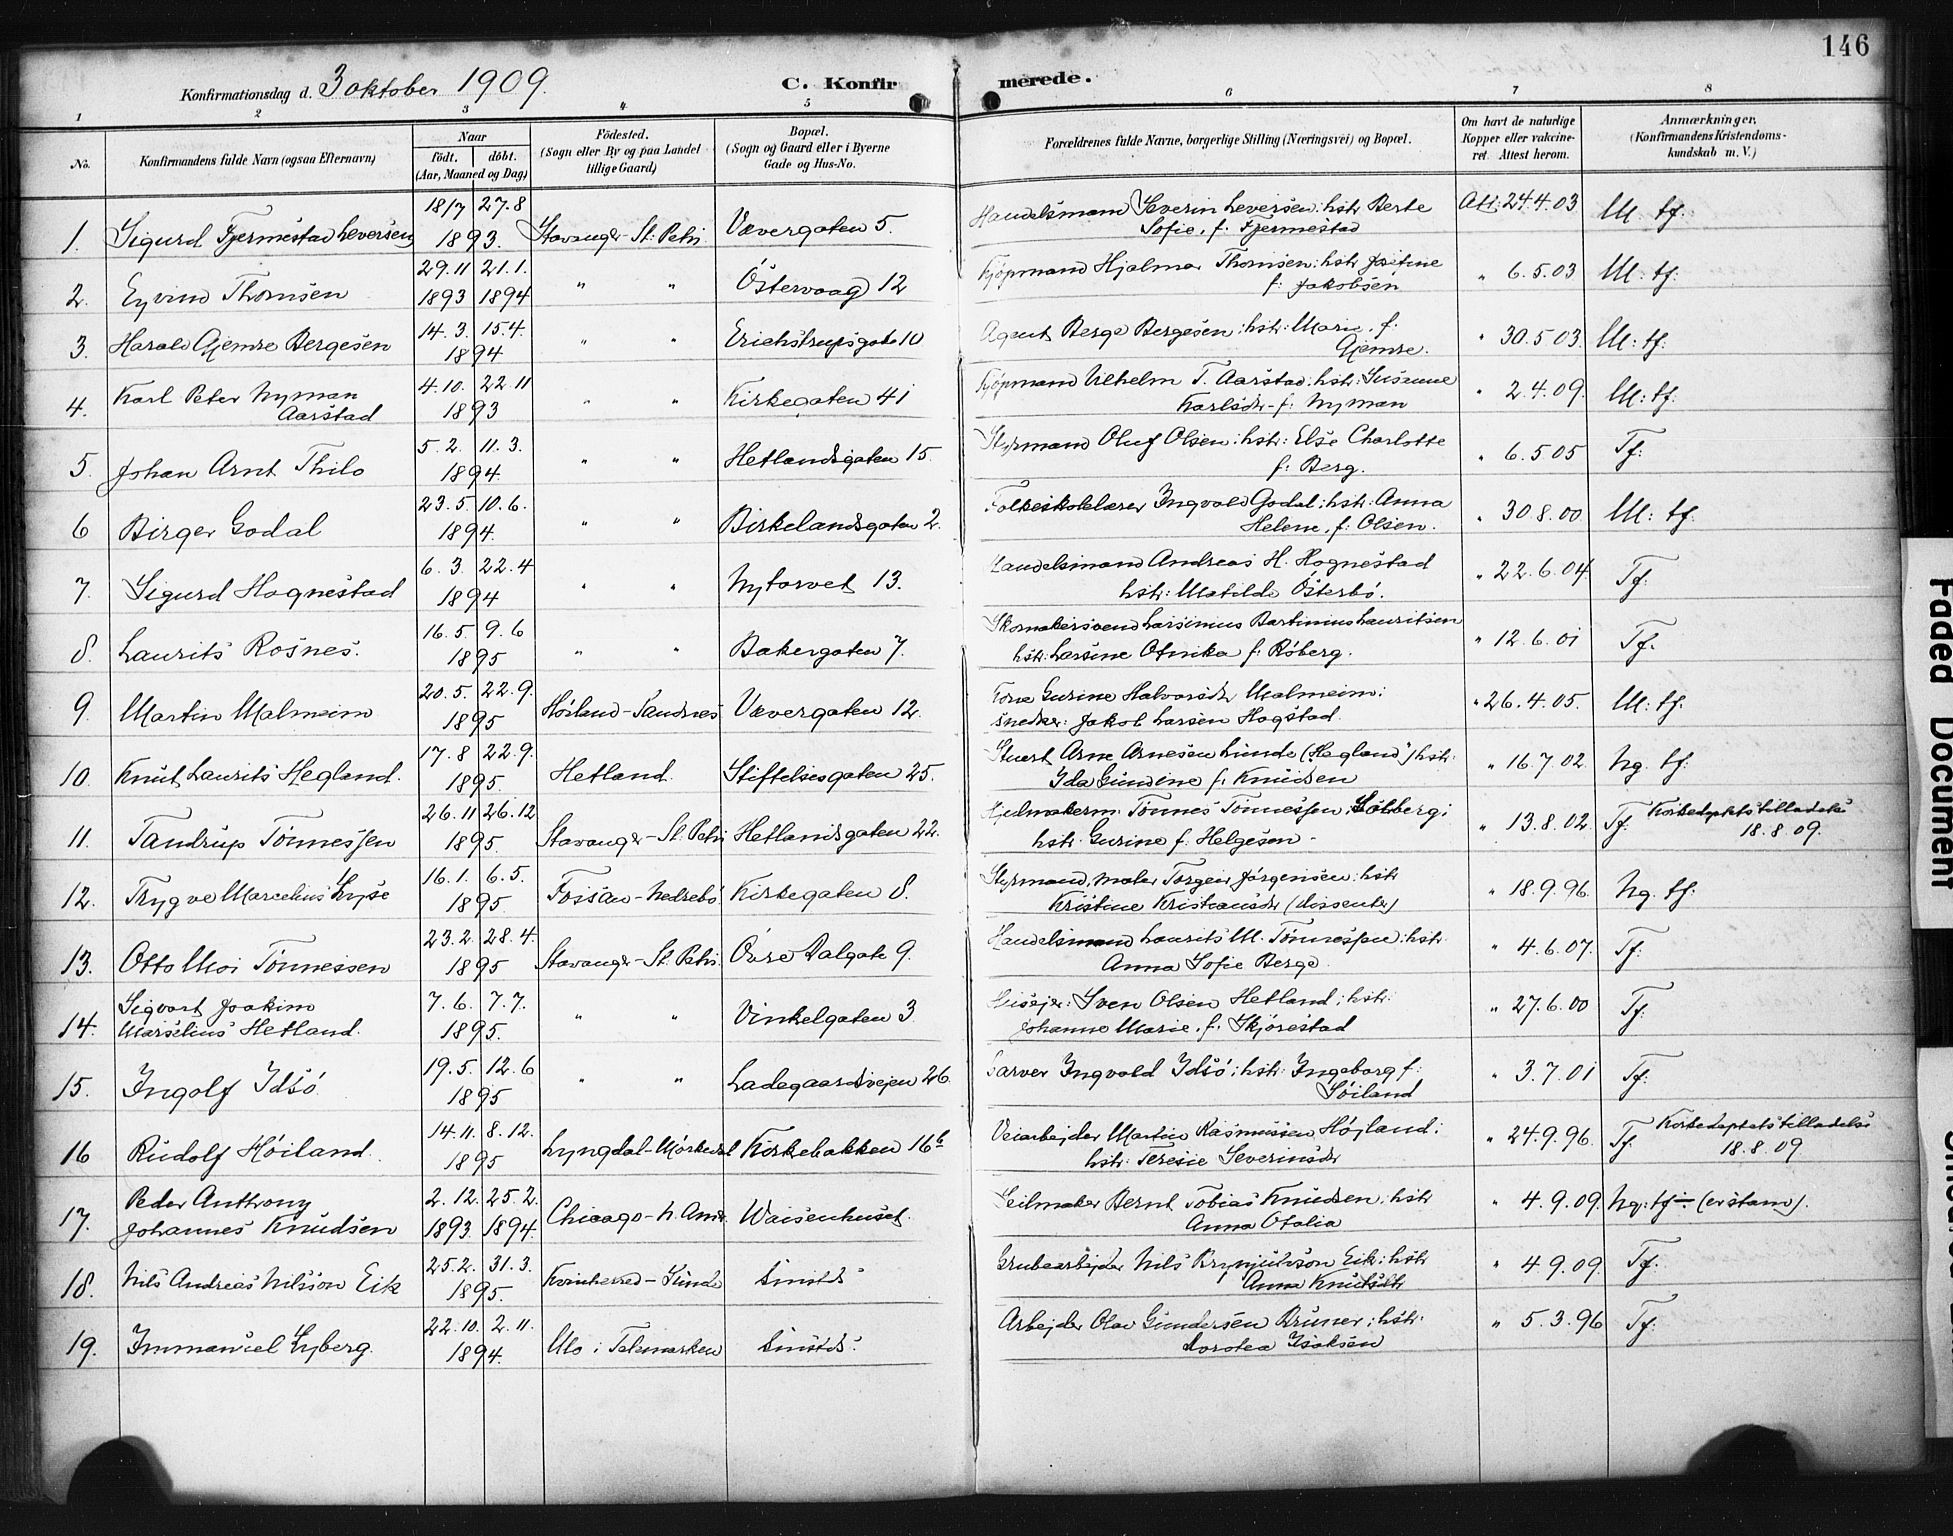 146
Konfirmationsdag d. 3 oktober 1909.
C. Konfirmerede.
1 2 3 4 5 6 7 8
No. Konfirmandens fulde Navn (ogsaa Efternavn)
Naar
født. døbt.
(Aar, Maaned og Dag)
Födested.
(Sogn eller By og paa Landet
tillige Gaard)
Bopæl.
(Sogn og Gaard eller i Byerne
Gade og Hus-No.
Forældrenes fulde Navne, borgerlige Stilling (Næringsvei) og Bopæl.
Om havt de naturlige
Kopper eller vakcine-
ret. Attest herom.
Anmærkninger.
(Konfirmandens Kristendoms-
kundskab m. V.)
1. Sigurd Fjermestad Leversen 18/7 27.8 1893. Stavanger - St. Petri Vævergaten 5. Handelsmand Severin Leversen: hstr Berte
Sofie, f. Fjermestad Att: 24.4.03 M: tf:
2. Eyvind Thomsen 29.11 21.1. 1893 1894 " " Östervaag 12 Kjøpmand Hjalmar Thomsen: hstr Josefine
f: Jakobsen " 6.5.03 M: tf:
3. Harald Gjemre Bergesen 14.3. 15.4. 1894 " " Erichstrupsgate 10 Agent Berge Bergesen: hstr: Marie, f:
Gjemre. " 30.5.03. M: tf:
4. Karl Peter Nyman
Aarstad 4.10. 22.11 1893 " " Kirkegaten 41 Kjöpmand Vilhelm T. Aarstad: hstr: Susanne
Karlsdr - f: Nyman " 2.4.09. M: tf:
5. Johan Arnt Thilo 5.2. 11.3. 1894. " " Hetlandsgaten 15. Styrmand Oluf Olsen: hstr: Else Charlotte
f: Berg. " 6.5.05 Tf:
6 Birger Godal 23.5. 10.6. 1894. " " Birkelandsgaten 2. Folkeskolelærer Ingvald Godal: hstr: Anna
Helene, f: Olsen. " 30.8.00 M: tf.
7. Sigurd Hognestad 6.3. 22.4 1894 " " Nytorvet 13. Handelsmand Andreas H. Hognestad
hstr: Matilde Österbö. " 22.6.04 Tf:
8. Laurits Rosnes. 16.5. 9.6 1895 " " Bakergaten 7. Skomakersvend Larsinius Bartinius Lauritsen
hstr: Larsine f. Röberg. " 12.6.01 Tf.
9. Martin Malmeim 20.5. 22.9. 1895 Höiland - Sandnes Vævergaten 12. Gurine Halvorsdr Malmeim:
snedker: Jakob Larsen Hogstad. " 26.4.05. M: tf.
10. Knut Laurits Hegland. 17.8 22.9. 1895. Hetland. Stiftelsesgaten 25. Stuert Arne Arnesen Lunde (Hegland) hstr:
Ida Gundine f. Knudsen " 16.7.02. Ng. tf:
11. Tandrup Tönnessen 26.11 26.12 1895. Stavanger - St. Petri Hetlandsgaten 22. Hjulmakerm. Tönnes Tönnessen Solberg:
hstr. Gurine f. Helgesen - " 13.8.02. Tf. tilladelse
18.8.09.
12. Trygve Marcelius Lyse 16.1. 6.5. 1895 Fossan - Nedrebö Kirkegaten 8. Styrmand, maler Torgeir Jörgensen: hstr
Kristine Kristiansdr (dissenter) " 18.9.96. Ng. tf:
13. Otto Moi Tönnessen 23.2. 28.4. 1895 Stavanger - St. Petri. Övre Dalgate 9. Handelsmand Laurits M. Tönnessen: hstr.
Anna Sofie Berge. " 4.6.07. Tf:
14. Sigvart Joakim
Marselius Hetland. 7.6. 7.7. 1895. " " Vinkelgaten 3 Huseier: Sven Olsen Hetland: hstr:
Johanne Marie, f. Skjörestad " 27.6.00 Tf:
15. Ingolf Idsö 19.5. 12.6 1895 " " Ladegaardsvejen 26. Garver Ingvald Idsö: hstr: Ingeborg f:
Söiland " 3.7.01 Tf:
16 Rudolf Höiland. 14.11. 8.12. 1895 Lyngdal - Kirkebakken 16b Veiarbejder Martin Rasmussen Höjland:
hstr: Teresie Severinsdr " 24.9.96. Tf. tilladelse
18.8.09
17. Peder Anthony
Johannes Knudsen 2.12. 25.2. 1893. 1894. Chicago - N. Amr. Waisenhuset. Seilmaker Bernt Tobias Knudsen: hstr
Anna Otalia " 4.9.09. Ng: tf - (er stam).
18. Nils Andreas Nilsson Eik 25.2. 31.3. 1895. Kvinherred - Sunde Grubearbejder Nils Eik: hstr
Anna Knutsdr " 4.9.09. Tf.
19. Immanuel Lyberg. 22.10. 2.11. 1894. Mo i Telemarken Arbejder Olav Gundersen Bruner: hstr.
Dorotea Isaksen " 5.3.96 Tf:
Faded Document